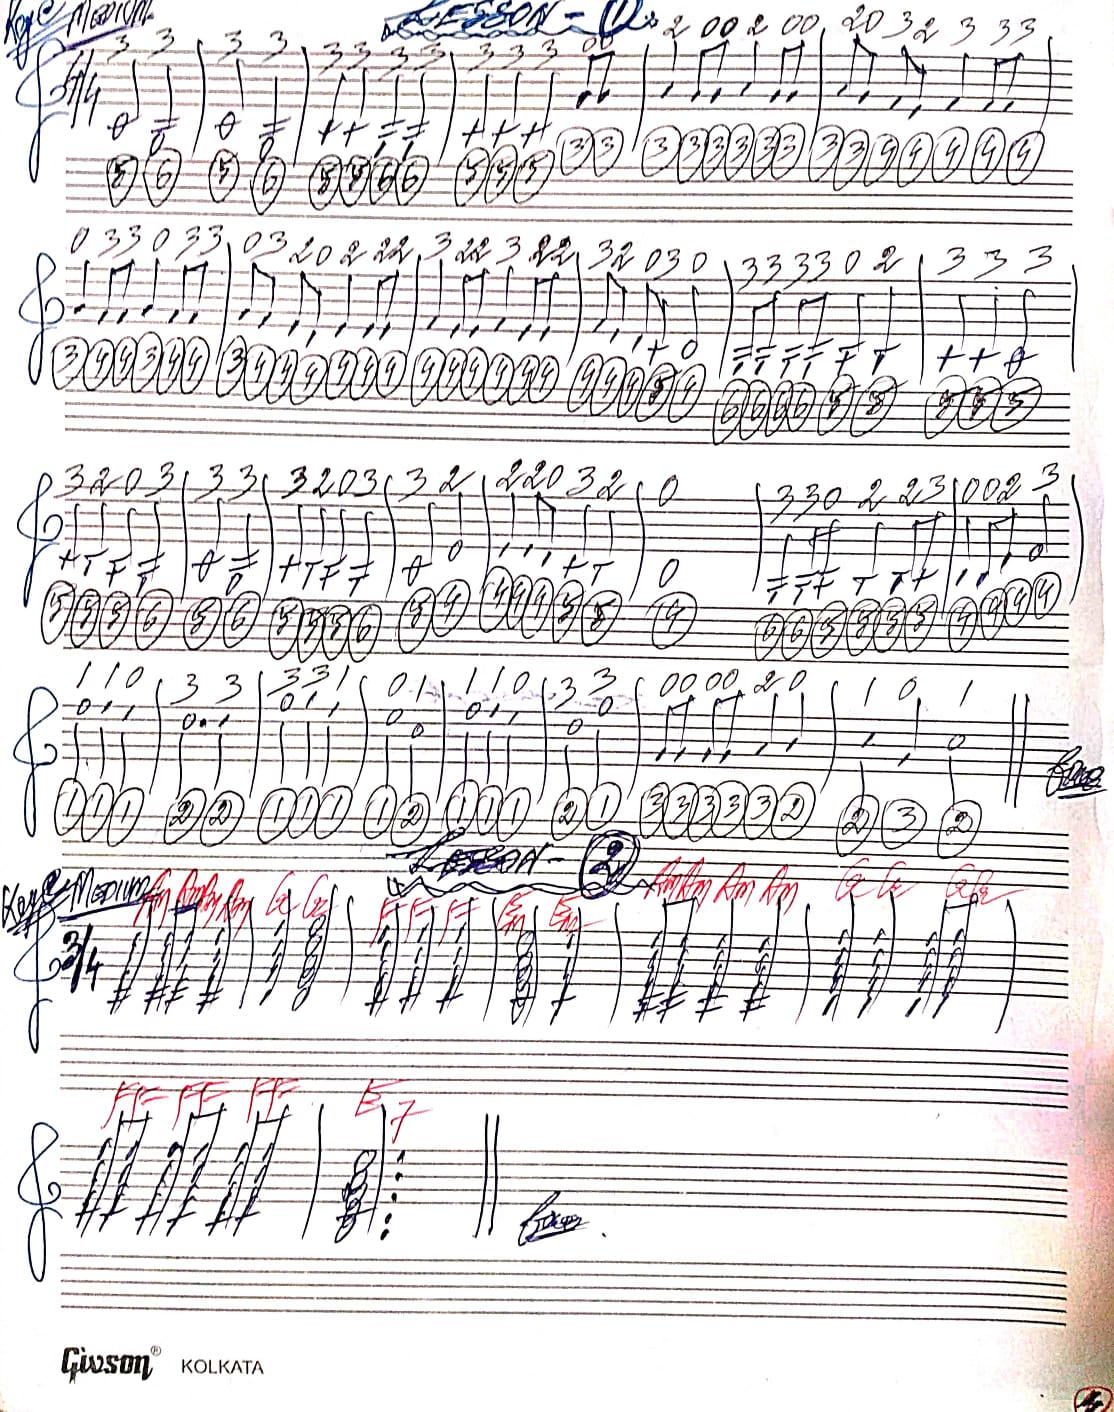 Key C MEDIUM. LESSON - ①
4/4 3 3 3 3 3 3 3 3 3 3 3 00 2 00 2 00 20 32 3 33
5 6 5 6 5 5 6 6 5 5 5 3 3 3 3 3 3 3 3 3 3 4 4 4 4 4
0 33 0 33 03 20 2 22 3 22 3 22 32 03 0 33 33 0 2 3 3 3
3 4 4 3 4 4 3 4 4 4 4 4 4 4 4 4 4 4 4 4 4 4 5 4 6 6 6 6 5 5 5 5 5
3 2 0 3 3 3 3 2 0 3 3 2 2 2 0 3 2 0 3 3 0 2 2 3 0 0 2 3
5 5 5 6 5 6 5 5 5 6 5 4 4 4 4 5 5 4 6 6 5 5 5 5 4 4 4 4
1 1 0 3 3 3 3 1 0 1 1 1 0 3 3 00 00 2 0 1 0 1
1 1 1 2 2 1 1 1 1 2 1 1 1 2 1 3 3 3 3 3 2 2 3 2
LESSON - ②
Key C MEDIUM Am Am Am Am G G F F F Em Em Am Am Am Am G G G G
3/4
F F F F F F E7
Givson® KOLKATA